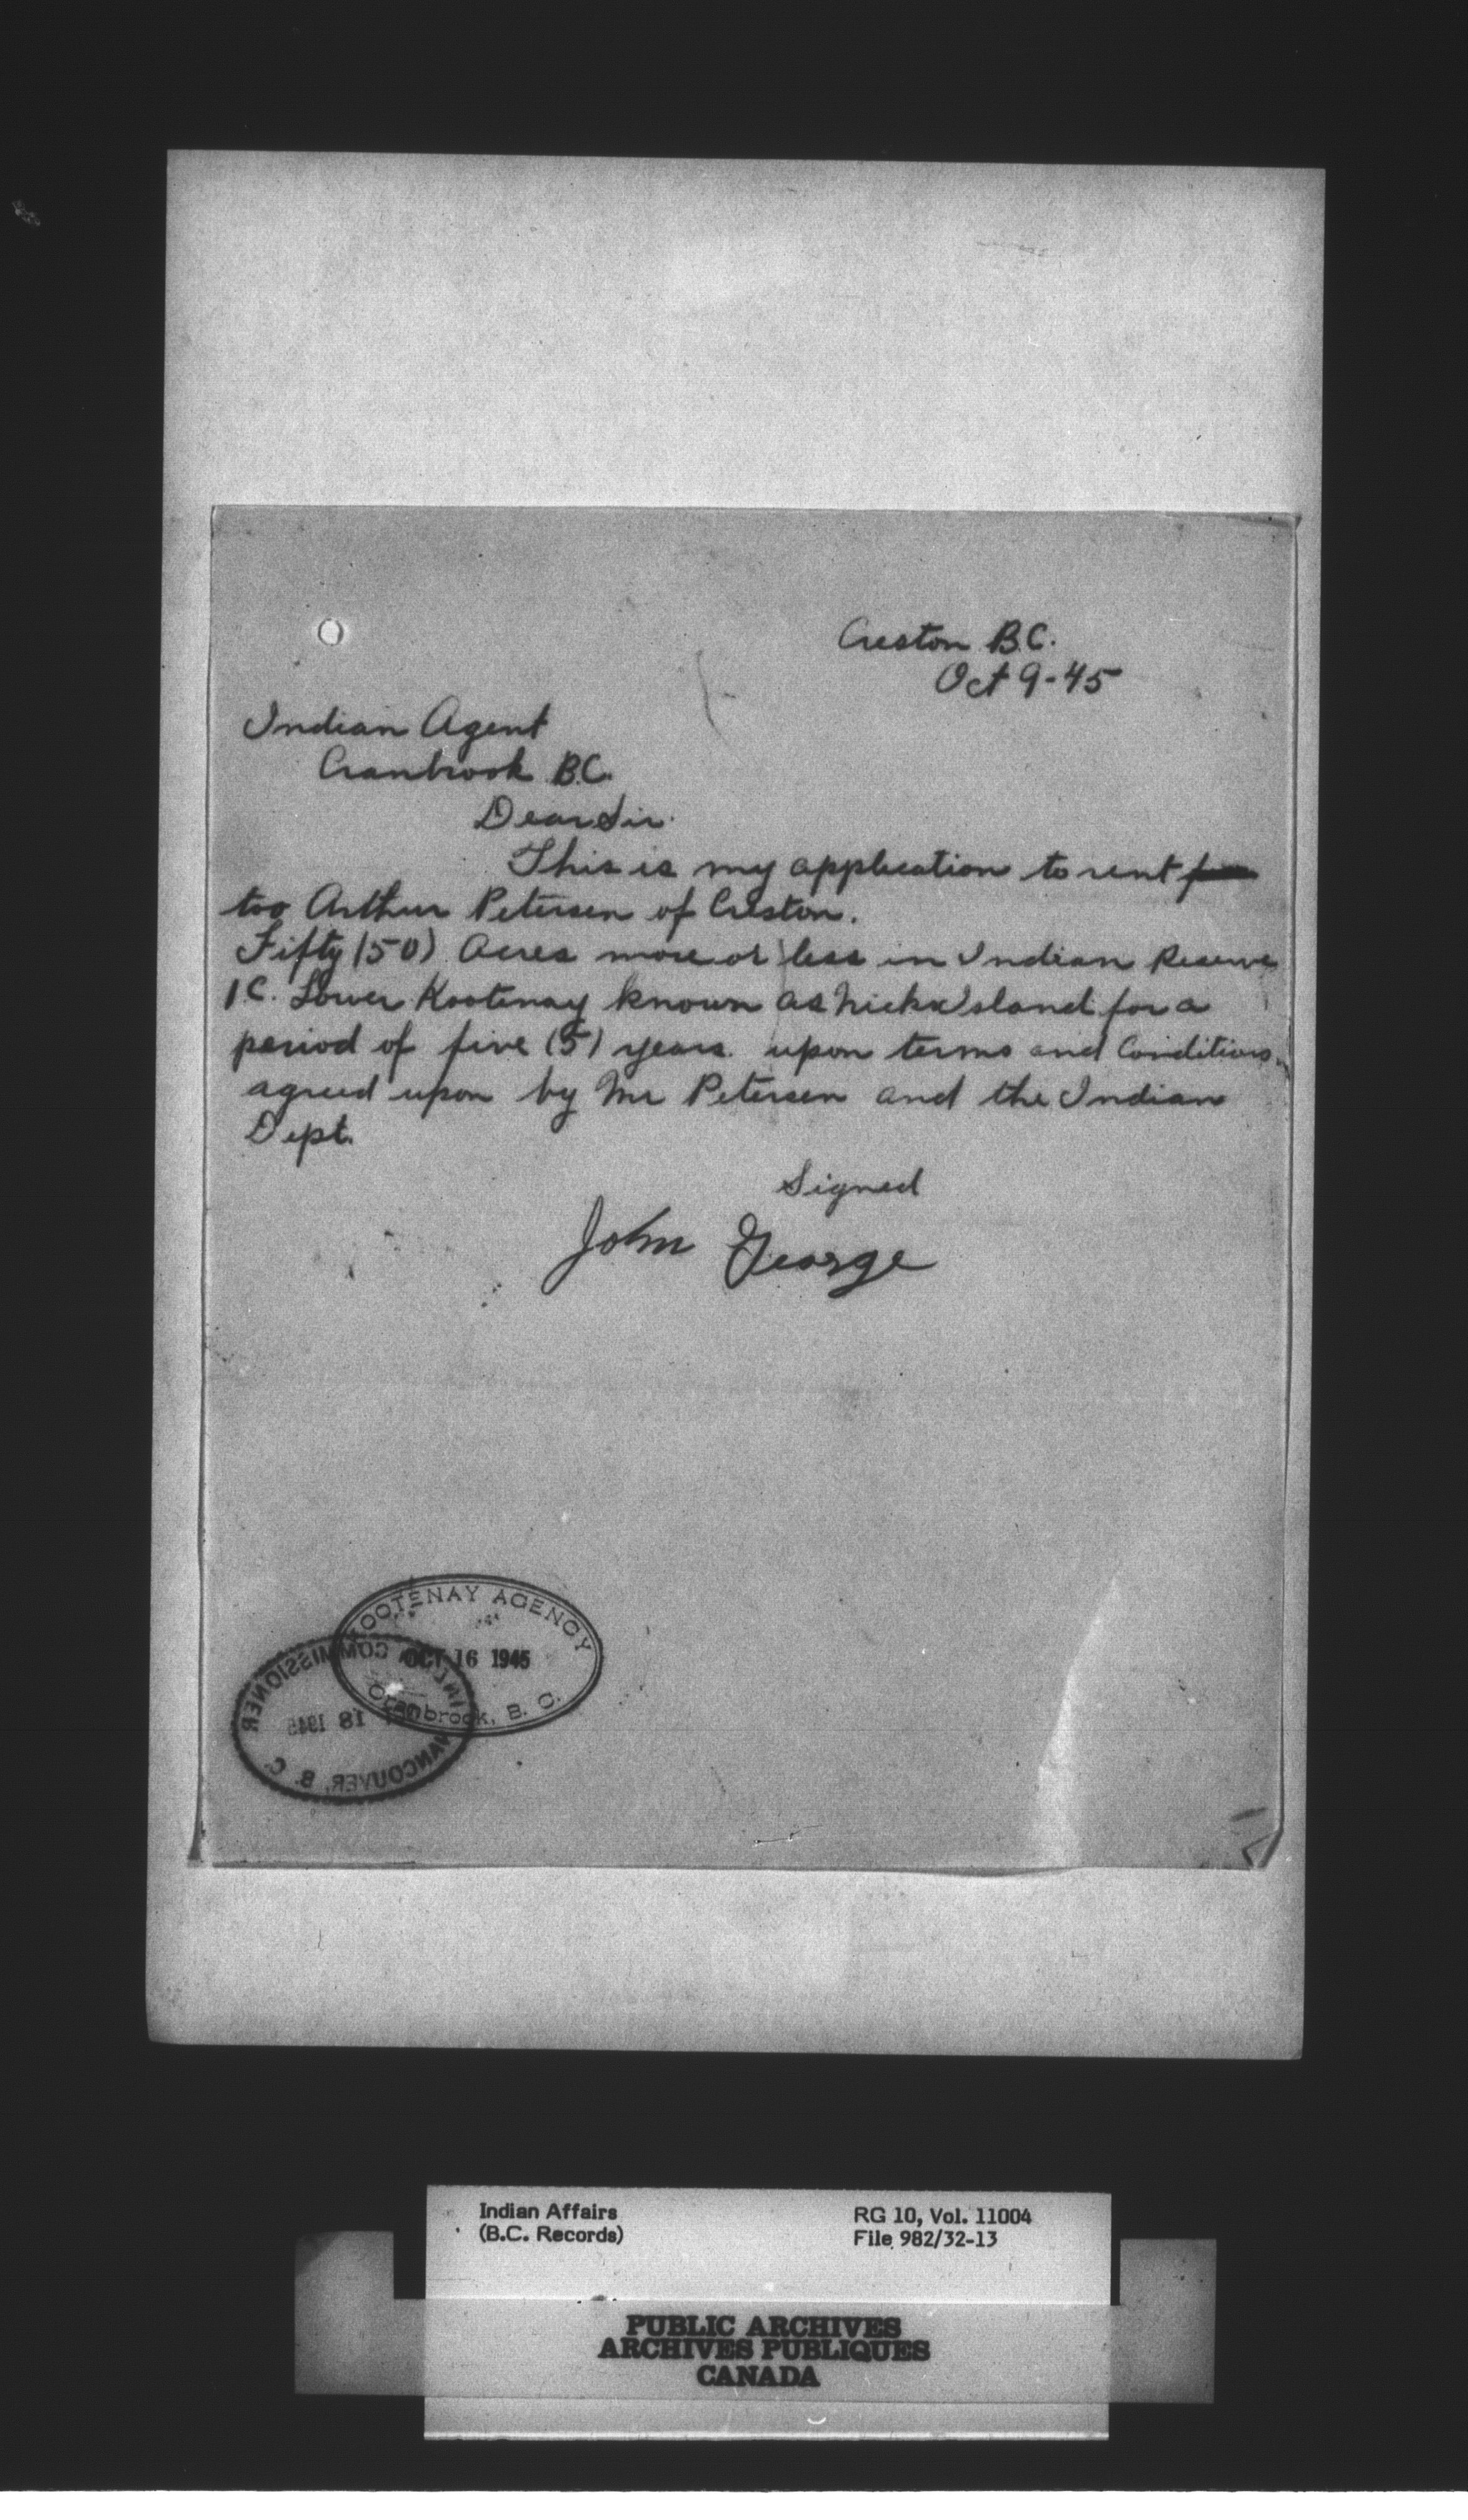 Creston B.C.
Oct 9-45
Indian Agent
Cranbrook B.C.
Dear Sir.
This is my application to rent
too Arthur Petersen of Creston.
Fifty (50) Acres more or less in Indian Reserve
1C. Lower Kootenay known as Nicks Island for a
period of five (5) years. upon terms and Conditions.
agreed upon by Mr Petersen and the Indian
Dept.
Signed
John George
KOOTENAY AGENCY
OCT 16 1945
Cranbrook, B. C.
INDIAN COMMISSIONER
18 1945
VANCOUVER, B. C.
Indian Affairs
(B.C. Records)
RG 10, Vol. 11004
File 982/32-13
PUBLIC ARCHIVES
ARCHIVES PUBLIQUES
CANADA